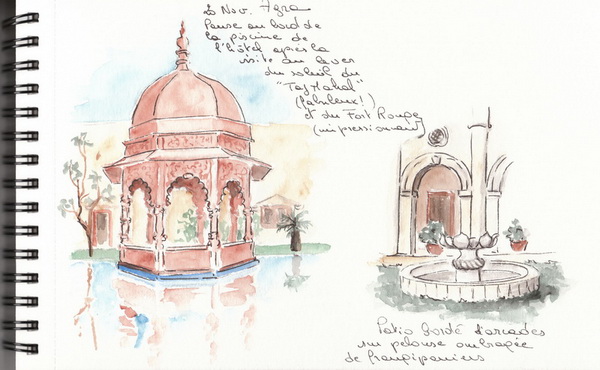 20 Nov. Agra
Pause au bord de
la piscine de
l'hôtel après la
visite au lever
du soleil du
"Taj Mahal"
(fabuleux!)
et du Fort Rouge
(impressionant)
Patio bordé d'arcades
sur pelouse ombragée
de frangipaniers